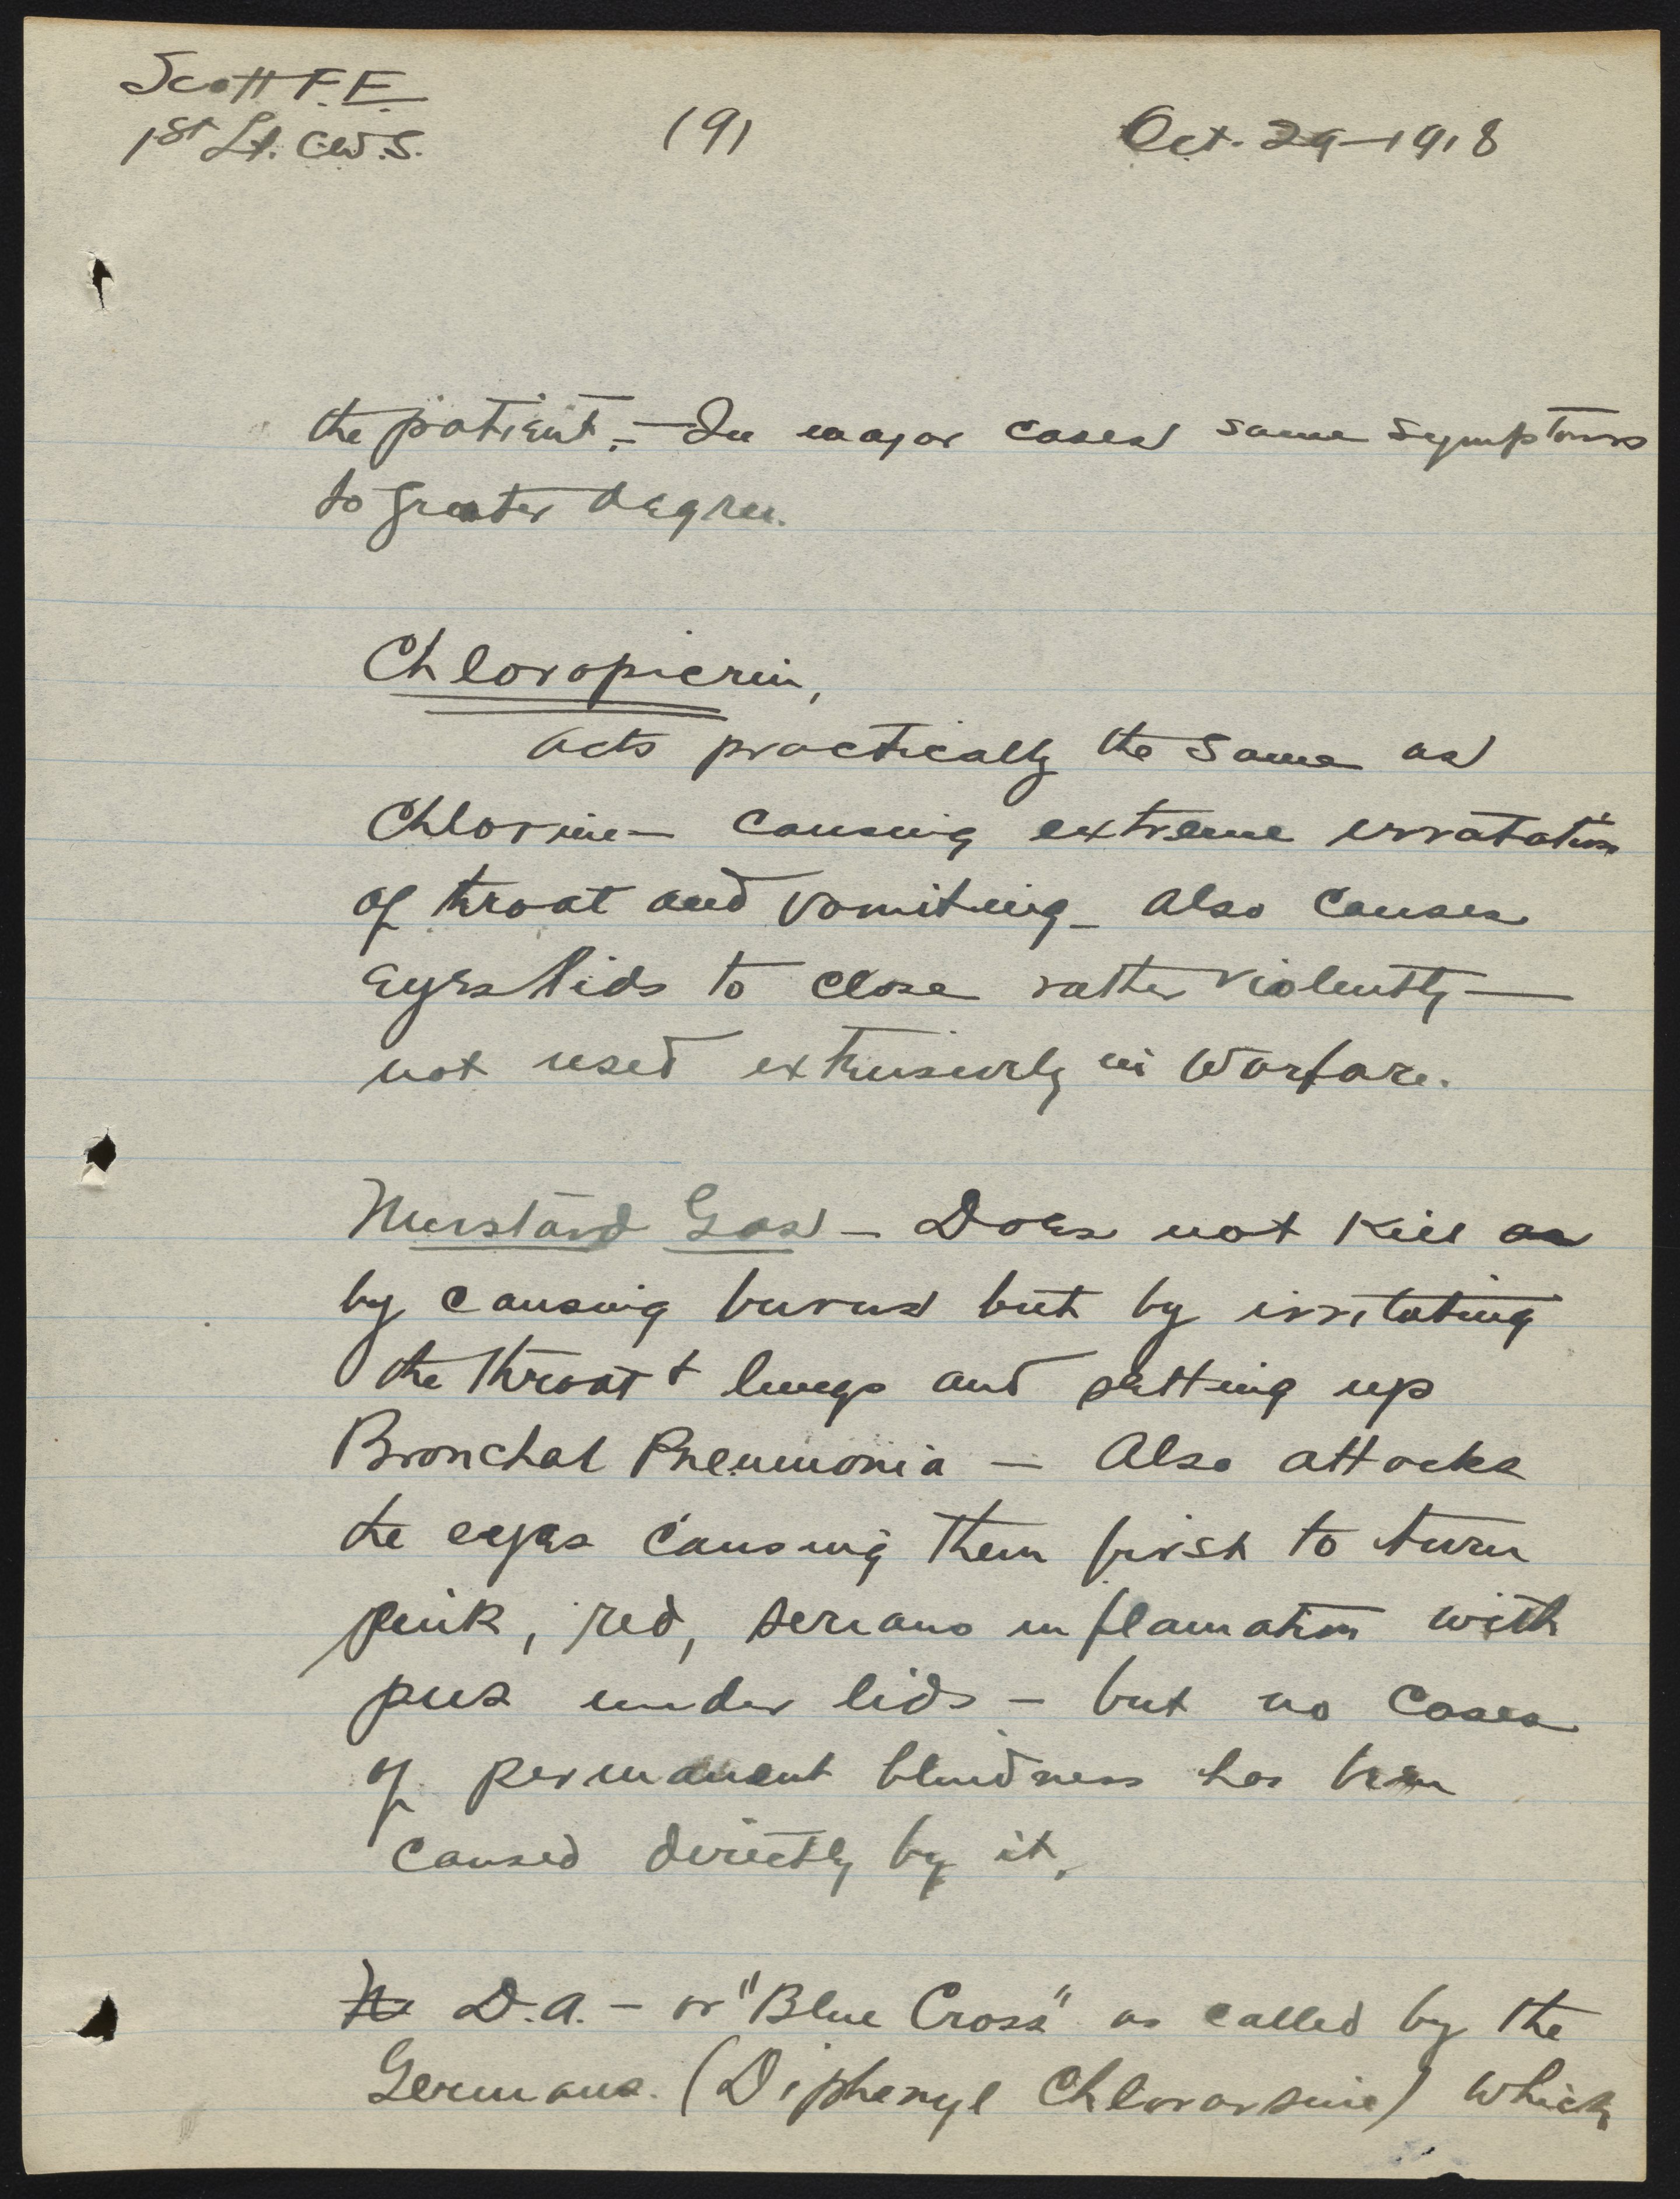 Scott F.E.
1st Lt. C.W.S.
(9)
Oct. 29-1918
the patient. - In major cases same symptoms
to greater degree.
Chloropicrin,
acts practically the same as
Chlorine - causing extreme irratation
of throat and vomiting - also causes
eyes lids to close rather violently -
not used extensively in Warfare.
Mustard Gas - Does not kill as
by causing burns but by irritating
the throat + lungs and setting up
Bronchal Pneumonia - Also attacks
the eyes causing them first to turn
pink, red, serious inflamation with
pus under lids - but no cases
of permanent blindness has been
caused directly by it.
D.A. - or "Blue Cross" as called by the
Germans. (Diphenyl Chlorarsine) which